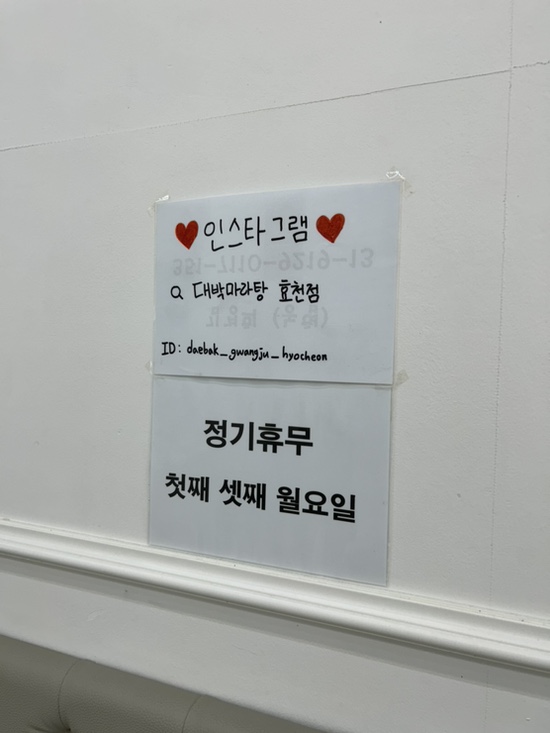 ♥인스타그램♥
대박마라탕 효천점
ID: daebak_gwangju_hyocheon
정기휴무
첫째 셋째 월요일